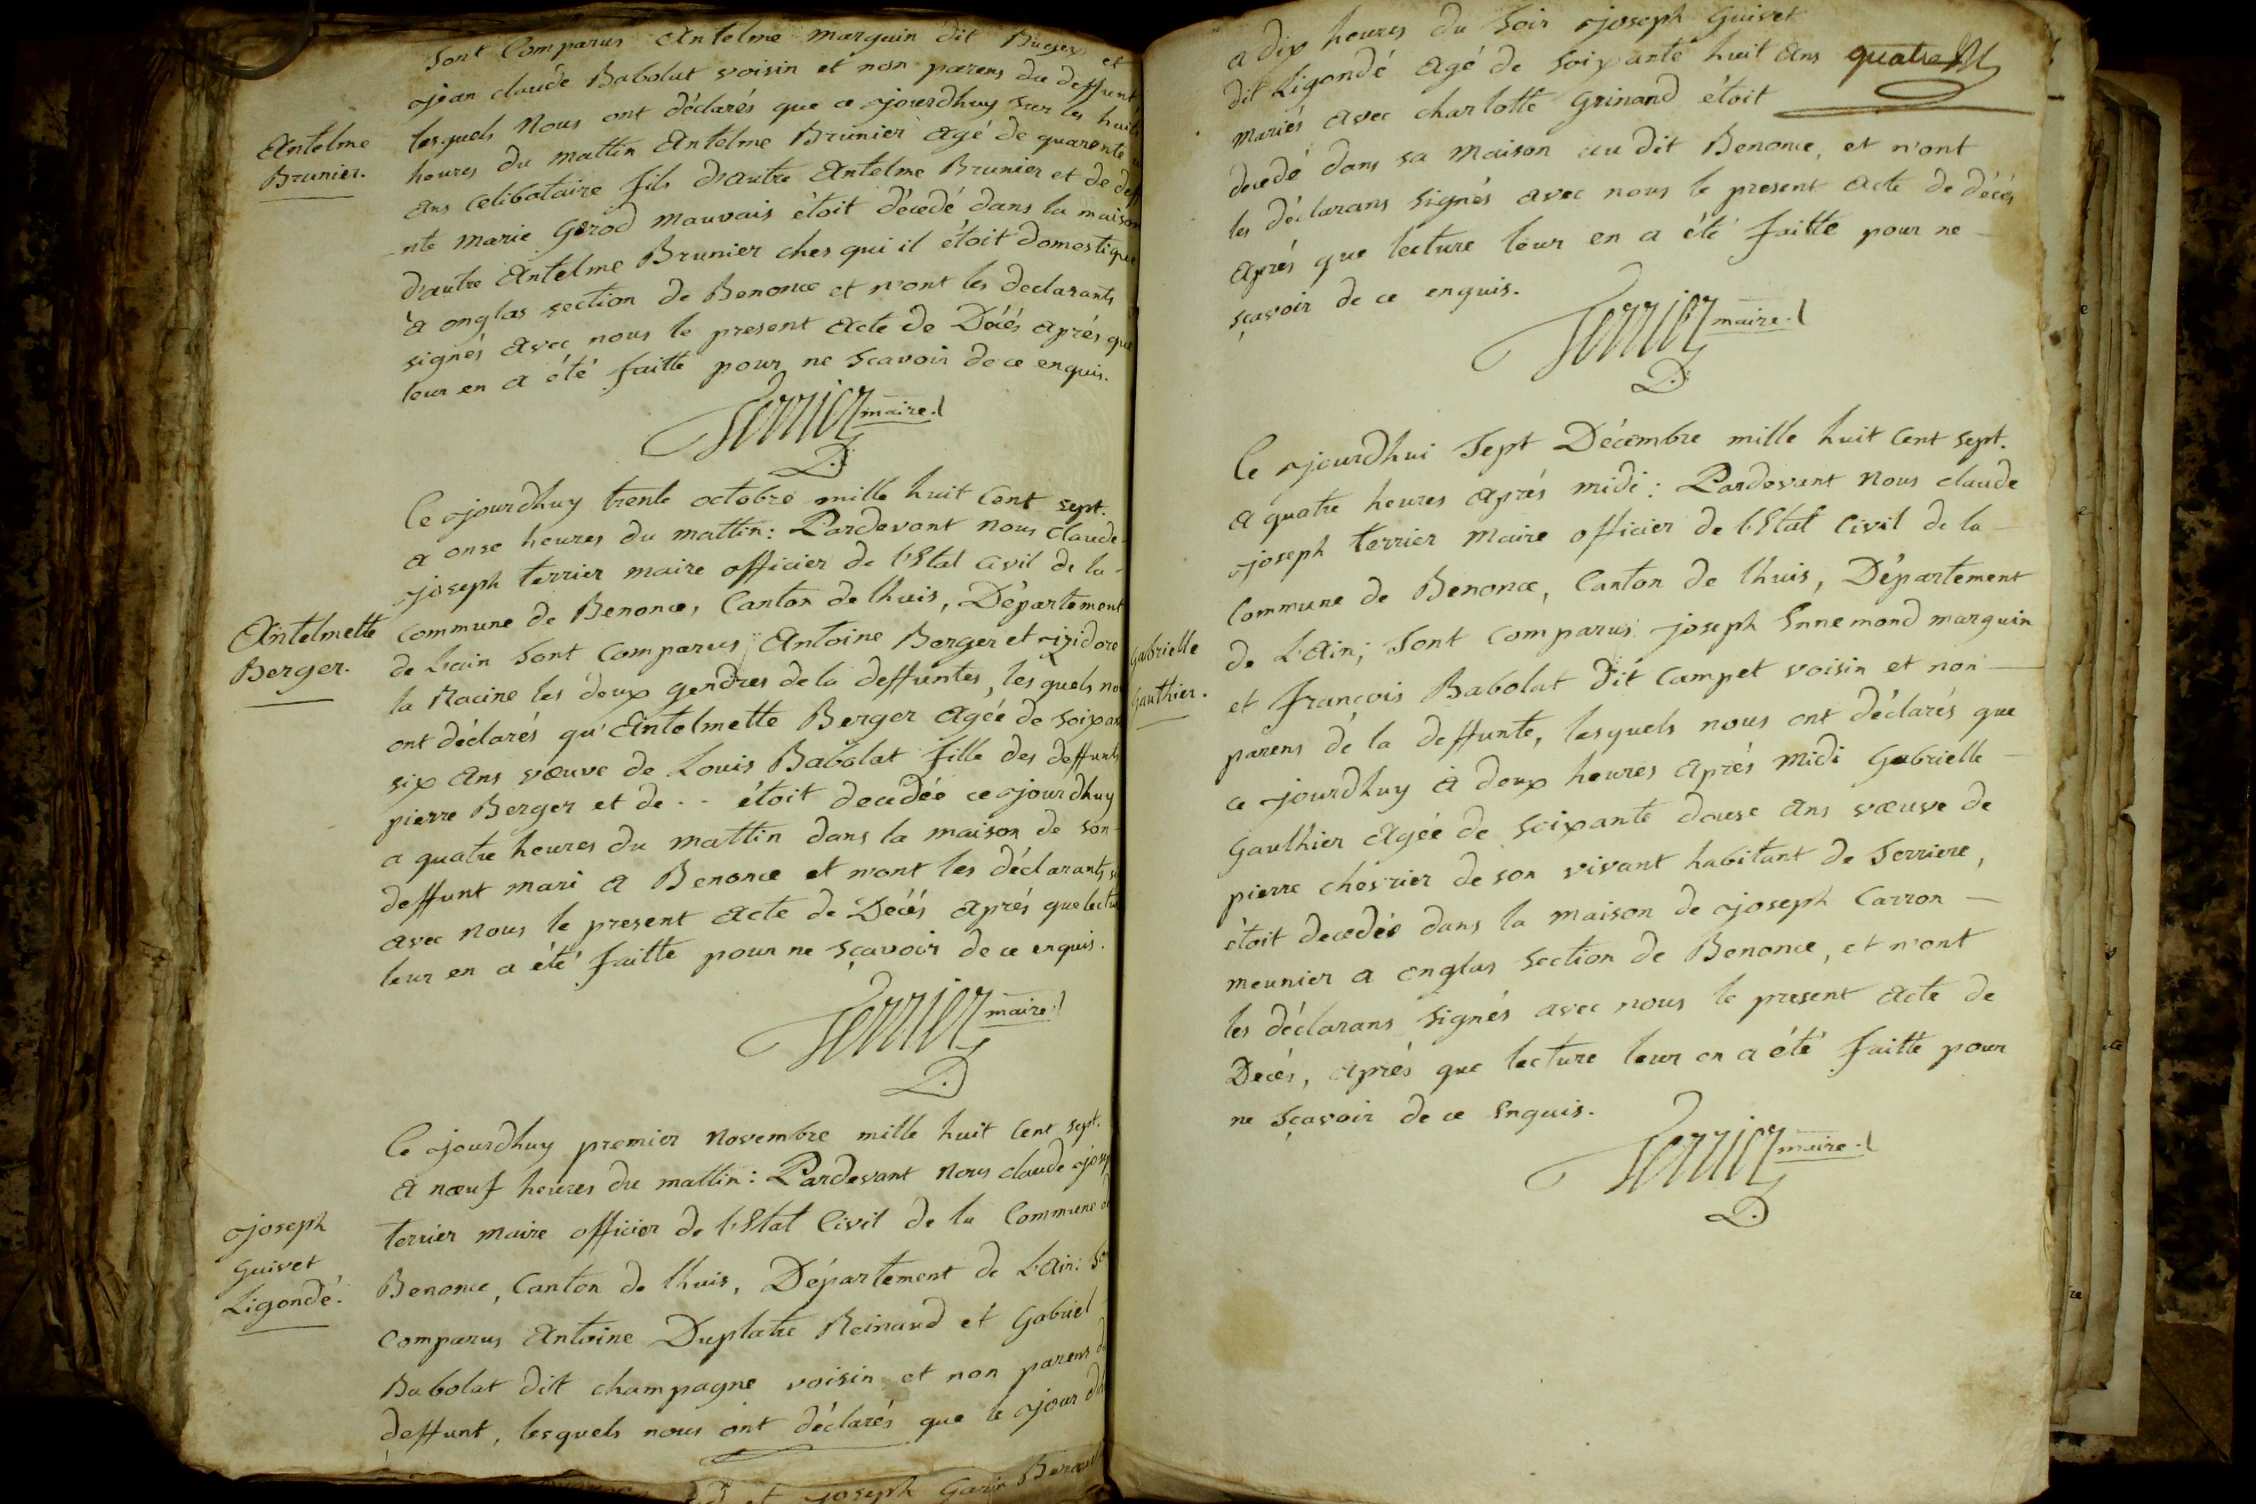 Sont Comparus Antelme marguin dit Bugey et
jean claude Babolat voisin et non parens du deffunt
lesquels Nous ont déclarés que ce jourdhuy sur les huit
Antelme
Brunier.
heures du mattin Antelme Brunier agé de quarente
ans celibataire fils d'autre Antelme Brunier et de deff
nte marie Gerod mauvais étoit décedé dans la maison
d'autre Antelme Brunier ches qui il étoit domestique
a onglas section de Benonce et n'ont les declarants
signés avec nous le present acte de Décés aprés que
leur en a été faitte pour ne sçavoir de ce enquis.
Terrier maire
Ce jourdhuy trente octobre mille huit Cent sept.
a onse heures du mattin: Pardevant nous claude
joseph terrier maire officier de l'Etat civil de la
Antelmette
Berger.
commune de Benonce, Canton de lhuis, Département
de Lain sont comparus Antoine Berger et izidore
la Racine les deux gendres de la deffuntes, les quels nou
ont déclarés qu'Antelmette Berger agée de soixan
six ans vœuve de Louis Babolat fille des deffunts
pierre Berger et de .. étoit decedée ce jourdhuy
a quatre heures du mattin dans la maison de son
deffunt mari a Benonce et n'ont les déclarants si
avec nous le present acte de Décés aprés que lectur
leur en a été faitte pour ne sçavoir de ce enquis.
Terrier maire
Ce jourdhuy premier Novembre mille huit Cent sept.
a nœuf heures du mattin: Pardevant Nous claude josep
joseph
Guivet
Ligondé.
terrier maire officier de l'Etat Civil de la Commune de
Benonce, Canton de lhuis, Département de L'Ain: So
comparus Antoine Duplatre Reinaud et Gabriel
Babolat dit champagne voisin et non parens d
deffunt, lesquels nous ont déclarés que le jour d
et joseph Garin
a dix heures du soir joseph Guivet
dit Ligondé agé de soixante huit ans quatre
mariés avec charlotte Grinand étoit
decedé dans sa maison au dit Benonce, et n'ont
les déclarans signés avec nous le present acte de décés
aprés que lecture leur en a été faitte pour ne
sçavoir de ce enquis.
Terrier maire
Ce jourdhui Sept Décembre mille huit Cent sept.
a quatre heures aprés midi: Pardevant Nous claude
joseph terrier maire officier de l'Etat Civil de la
Commune de Benonce, Canton de lhuis, Département
Gabrielle
Gauthier.
de L'Ain; Sont comparus joseph Ennemond marguin
et françois Babolat dit Campet voisin et non
parens de la deffunte, lesquels nous ont déclarés que
ce jourdhuy à deux heures aprés midi Gabrielle
Gaulhier agée de soixante douse ans vœuve de
pierre chevrier de son vivant habitant de serriere,
étoit decedée dans la maison de joseph Carron
meunier a onglas section de Benonce, et n'ont
les déclarans signés avec nous le present acte de
Décés, aprés que lecture leur en a été faitte pour
ne sçavoir de ce Enquis.
Terrier maire